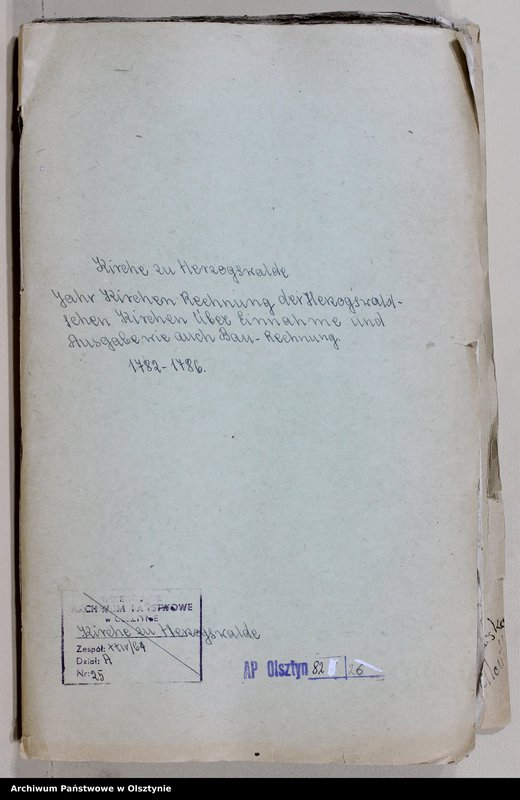 Kirche zu Herzogswalde
Jahr Kirchen Rechnung der Herzogswald-
schen Kirchen über Einnahme und
Ausgabe wie auch Bau-Rechnung.
1782-1786.
ARCHIWUM PAŃSTWOWE
W OLSZTYNIE
Kirche zu Herzogswalde
Zespół: XXIV/64
Dział: A
Nr: 25
AP Olsztyn 82 26
Archiwum Państwowe w Olsztynie